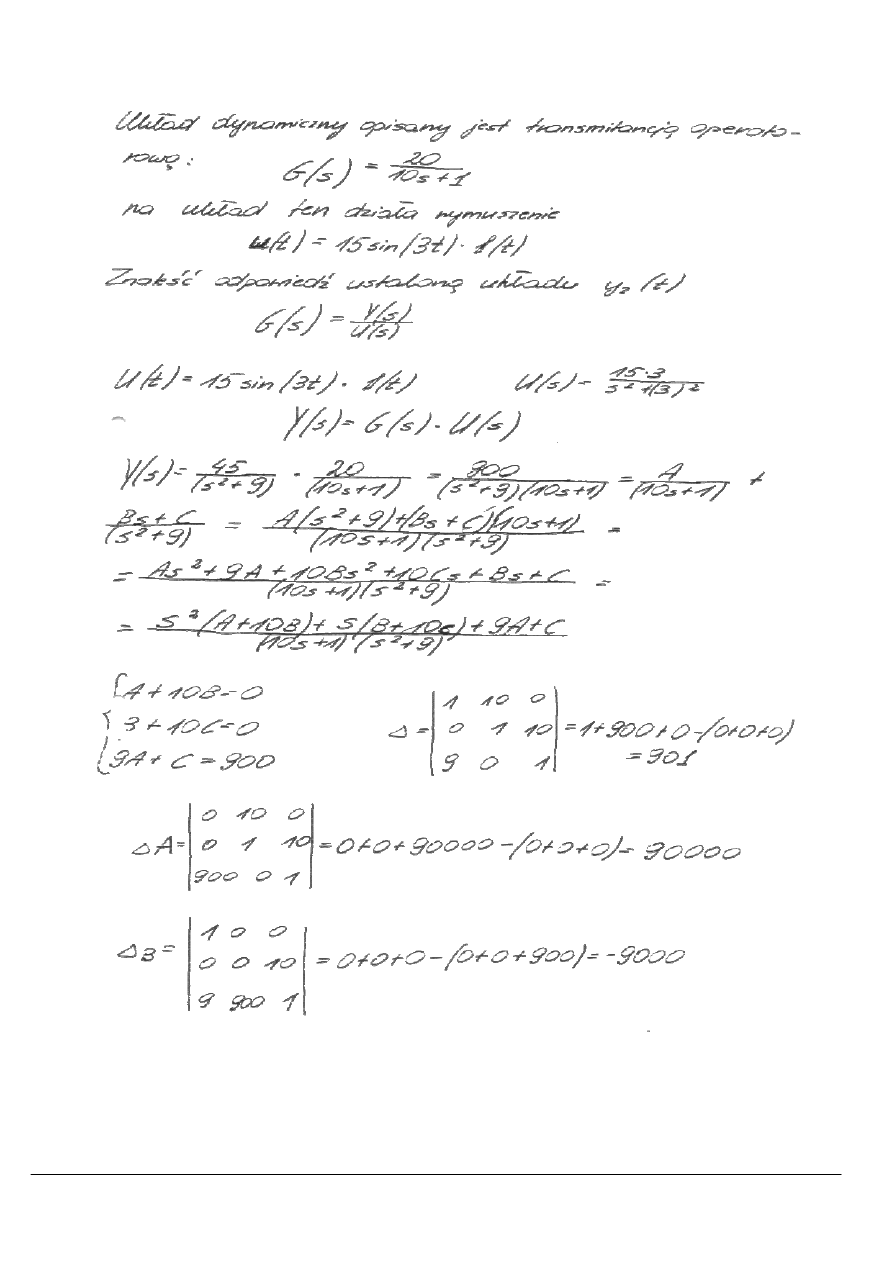 Układ dynamiczny opisany jest transmitancją operato-
rową: G(s) = 20/(10s+1)
na układ ten działa wymuszenie
u(t) = 15 sin(3t) · 1(t)
Znaleść odpowiedź ustaloną układu y₂(t)
G(s) = Y(s)/U(s)
U(t) = 15 sin(3t) · 1(t) U(s) = 15·3/(s²+(3)²)
Y(s) = G(s) · U(s)
Y(s) = 45/(s²+9) · 20/(10s+1) = 900/((s²+9)(10s+1)) = A/(10s+1) +
(Bs+C)/(s²+9) = (A(s²+9)+(Bs+C)(10s+1))/((10s+1)(s²+9)) =
= (As²+9A+10Bs²+10Cs+Bs+C)/((10s+1)(s²+9)) =
= (s²(A+10B)+s(B+10C)+9A+C)/((10s+1)(s²+9))
{A+10B=0
B+10C=0
9A+C=900
Δ = |1 10 0
0 1 10| = 1+900+0-(0+0+0)
9 0 1| = 901
ΔA = |0 10 0
0 1 10| = 0+0+90000-(0+0+0) = 90000
900 0 1|
ΔB = |1 0 0
0 0 10| = 0+0+0-(0+0+900) = -9000
9 900 1|